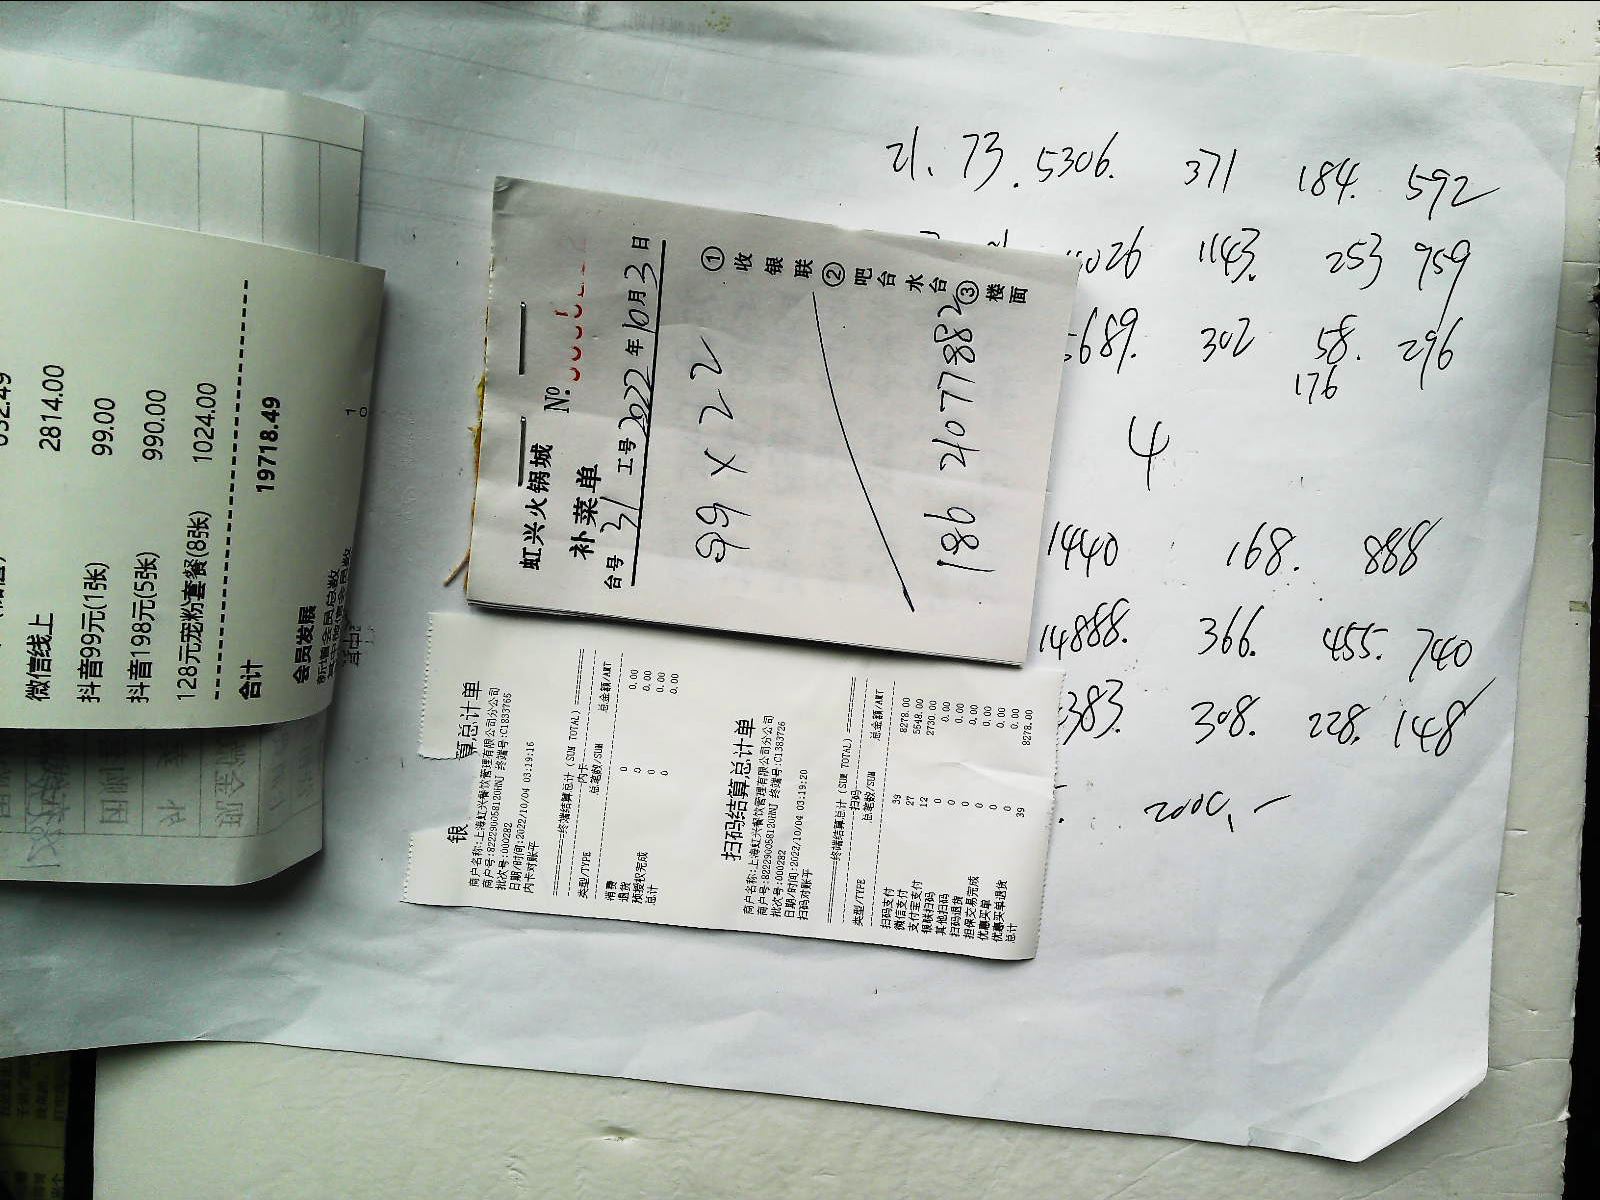 微信线上 2814.00
抖音99元(1张) 99.00
抖音198元(5张) 990.00
128元宠粉套餐(8张) 1024.00
合计 19718.49
会员发展
虹兴火锅城
补菜单 №
台号 31 工号 2022 年 10 月 3 日
99 x 22
186 21077882
①收银联 ②吧台水台 ③楼面
银 算总计单
商户名称:上海虹兴餐饮管理有限公司分公司
商户号:82229005812 终端号:C1383765
批次号:000282
日期/时间:2022/10/04 03:19:16
内卡对账平
=====终端结算总计(SUM TOTAL)=====
内卡
类型/TYPE 总笔数/SUM 总金额/AMT
消费 0 0.00
退货 0 0.00
预授权完成 0 0.00
总计 0 0.00
扫码结算总计单
商户名称:上海虹兴餐饮管理有限公司分公司
商户号:82229005812 终端号:C1383726
批次号:000282
日期/时间:2022/10/04 03:19:20
扫码对账平
=====终端结算总计(SUM TOTAL)=====
扫码
类型/TYPE 总笔数/SUM 总金额/AMT
扫码支付 39 8278.00
微信支付 27 5548.00
支付宝支付 12 2730.00
银联扫码 0 0.00
其他扫码 0 0.00
扫码退货 0 0.00
担保交易完成 0 0.00
优惠买单 0 0.00
优惠买单退货 0 0.00
总计 39 8278.00
21. 73. 5306. 371 184. 592
026 1143. 253 959
689. 302 58. 296
176
4
1440 168. 888
14888. 366. 455. 740
383. 308. 228. 148
2000.